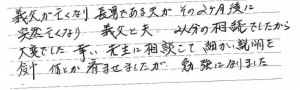 義父が亡くなり 長男である夫が その2ヶ月後に
突然亡くなり 義父と夫、2人分の相談でしたから
大変でした 幸い 先生に相談して 細かい説明を
受け 何とか 済ませましたが 勉強になりました